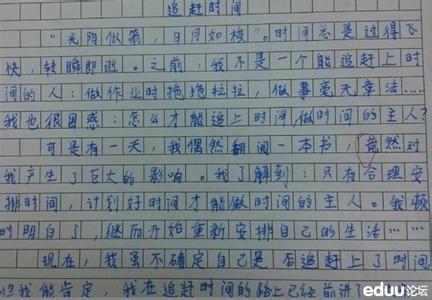 追赶时间
“光阴似箭，日月如梭”。时间总是过得飞
快，转瞬即逝。之前，我不是一个能追赶上时
间的人：做作业时拖拖拉拉，做事毫无章法……
我也很困惑：怎么才能追上时间，做时间的主人？
可是有一天，我偶然翻阅一本书，竟然对
我产生了巨大的影响。我了解到：只有合理安
排时间，计划好时间才能做时间的主人。我顿
时明白了，继而开始重新安排自己的生活……
现在，我虽不确定自己是否追赶上了时间，
但我能肯定，我在追赶时间的路上已经前进了
eduu论坛